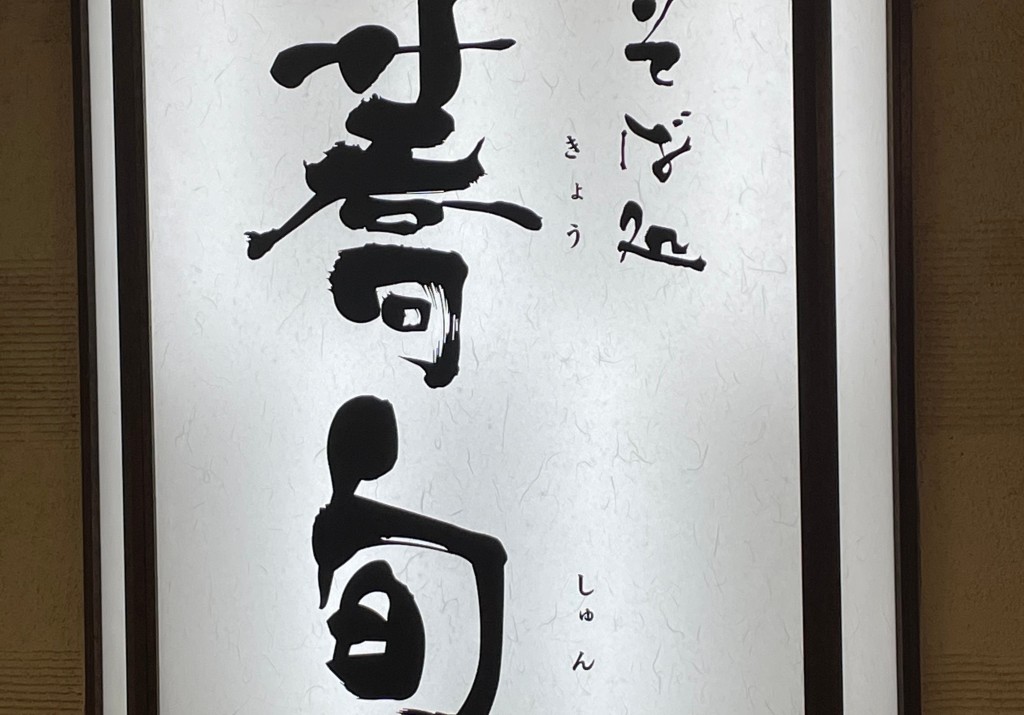 そば処
きょう しゅん
蕎旬